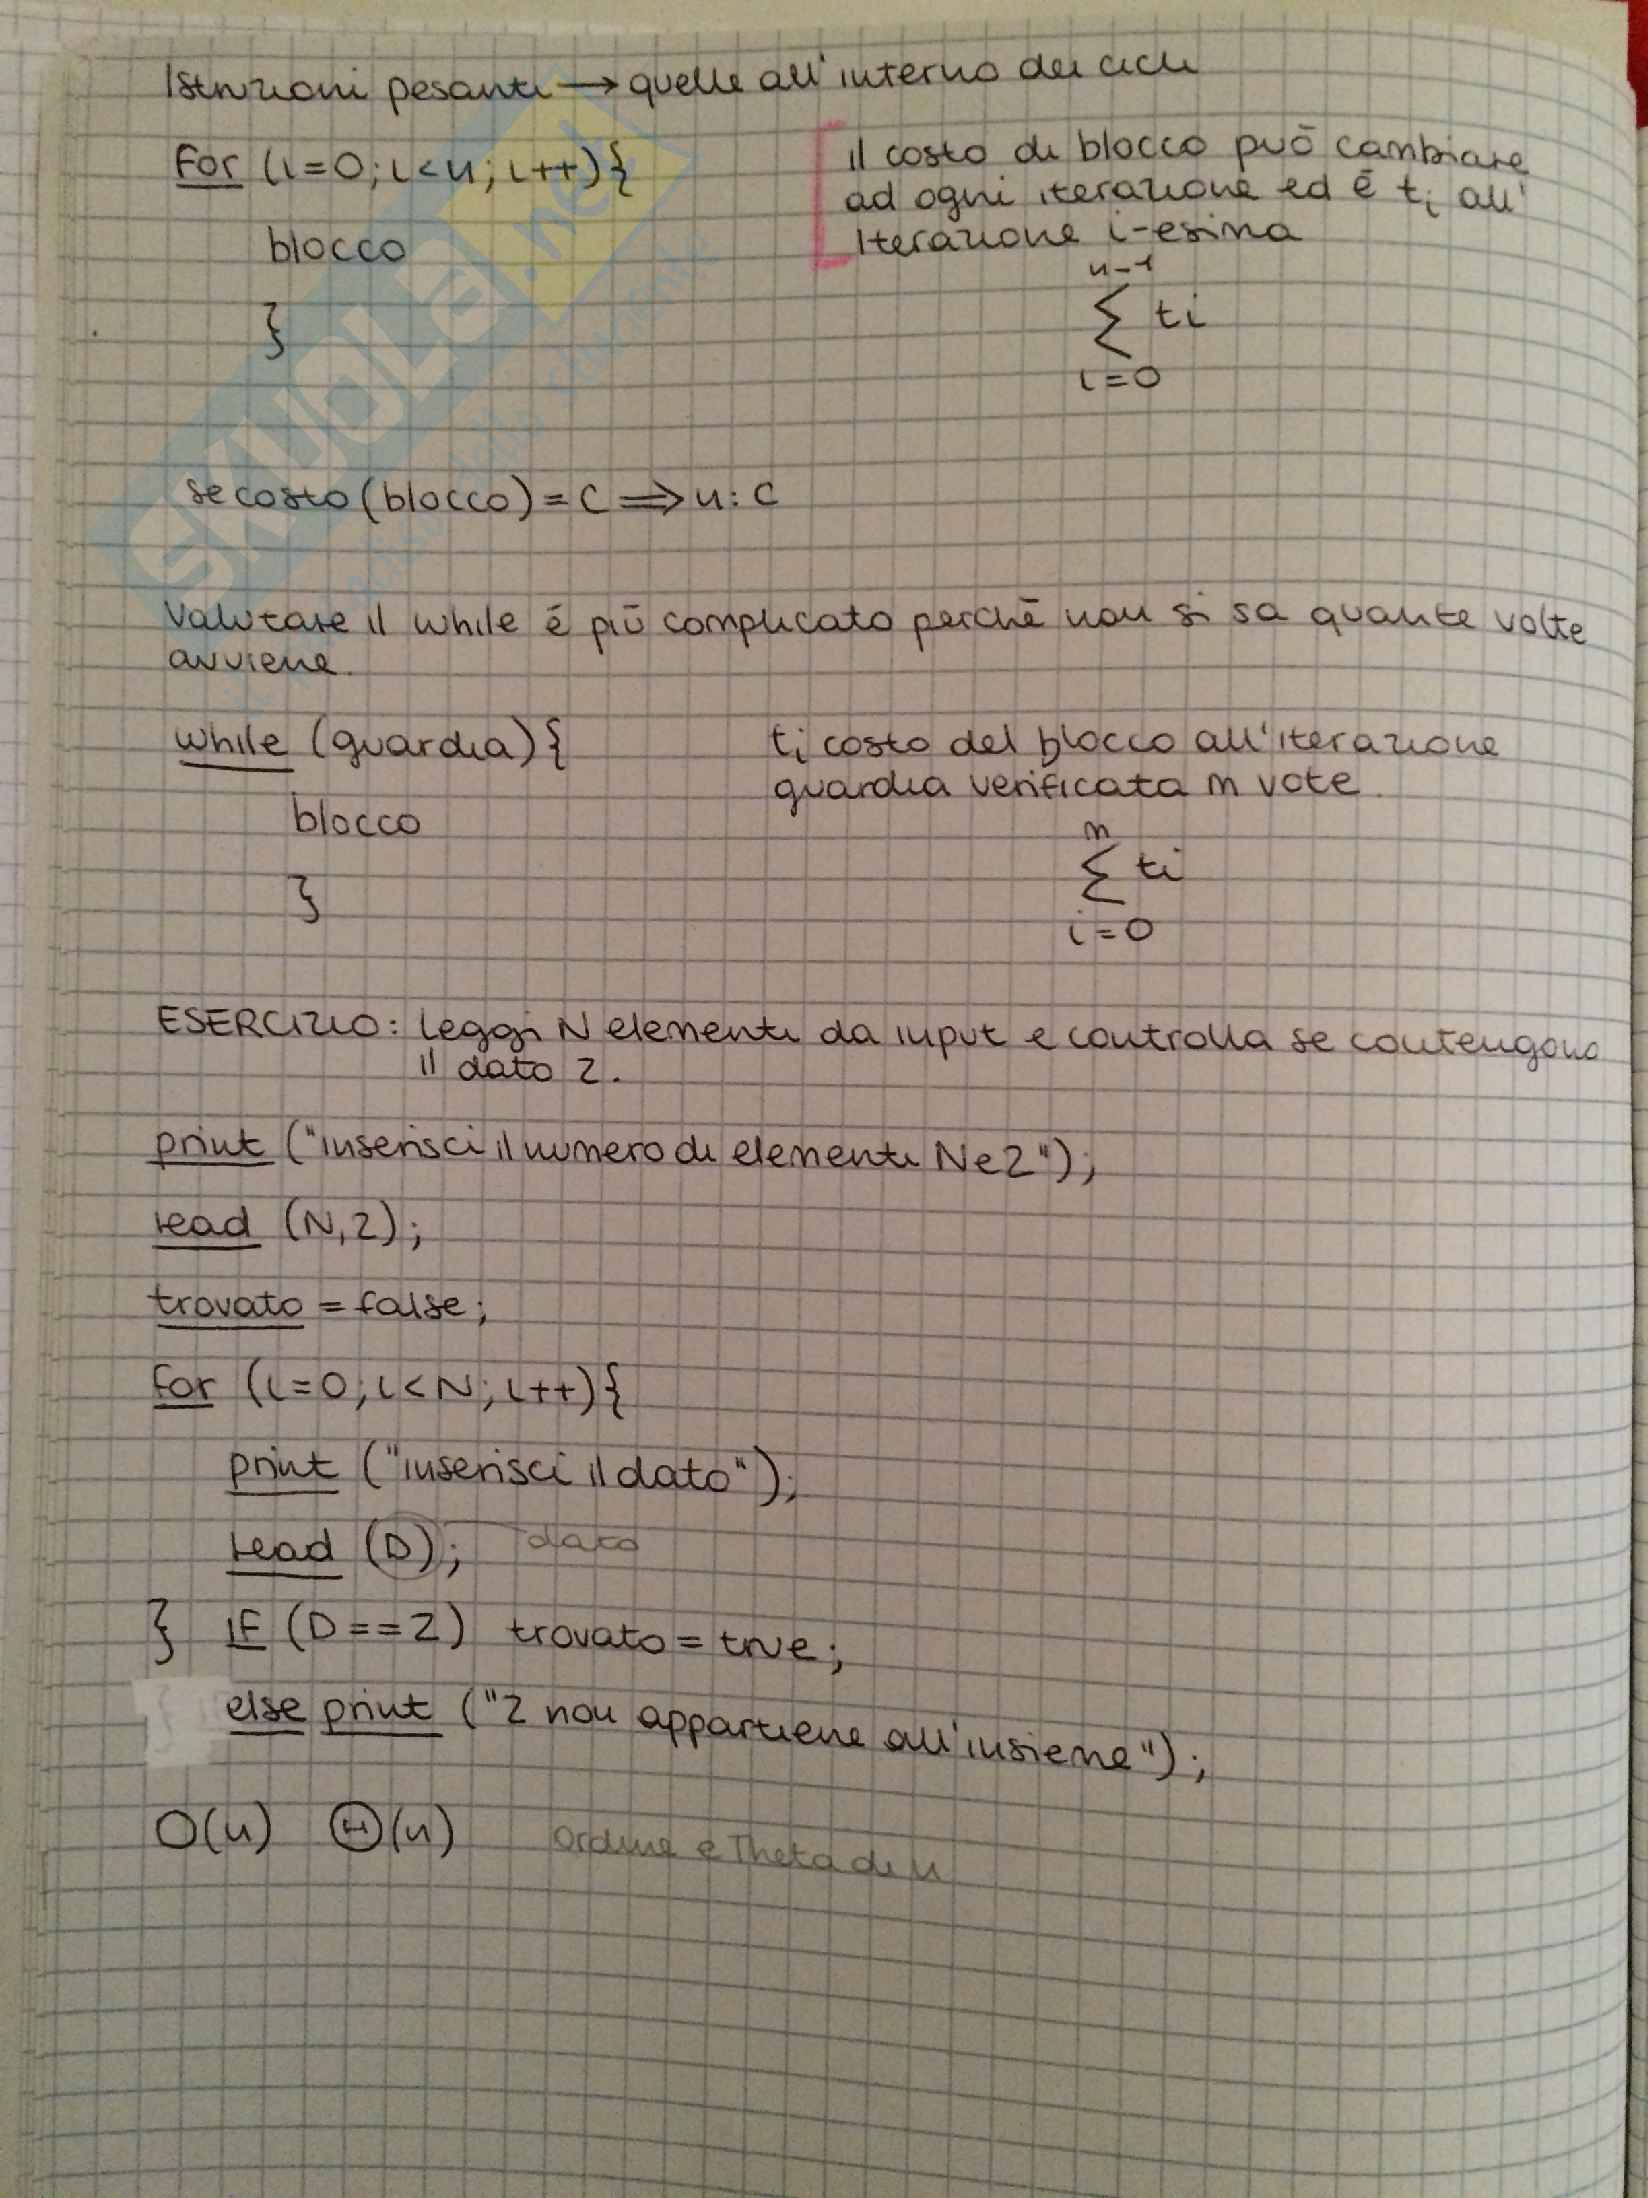 Istruzioni pesanti → quelle all'interno dei cicli
For (i=0; i<n; i++){
blocco
}
il costo di blocco può cambiare
ad ogni iterazione ed è ti all'
Iterazione i-esima
n-1
Σ ti
i=0
se costo (blocco) = C ⟹ n : C
Valutare il while è più complicato perchè non si sa quante volte
avviene.
while (guardia){
blocco
}
ti costo del blocco all'iterazione
guardia verificata m vote.
m
Σ ti
i=0
ESERCIZIO: Leggi N elementi da input e controlla se contengono
il dato Z.
print ("inserisci il numero di elementi N e Z");
read (N,Z);
trovato = false;
For (i=0; i<N; i++){
print ("inserisci il dato");
read (D); dato
} IF (D==Z) trovato = true;
else print ("Z non appartiene all'insieme");
O(n) Θ(n) Ordine e Theta di n
SKUOLA.net